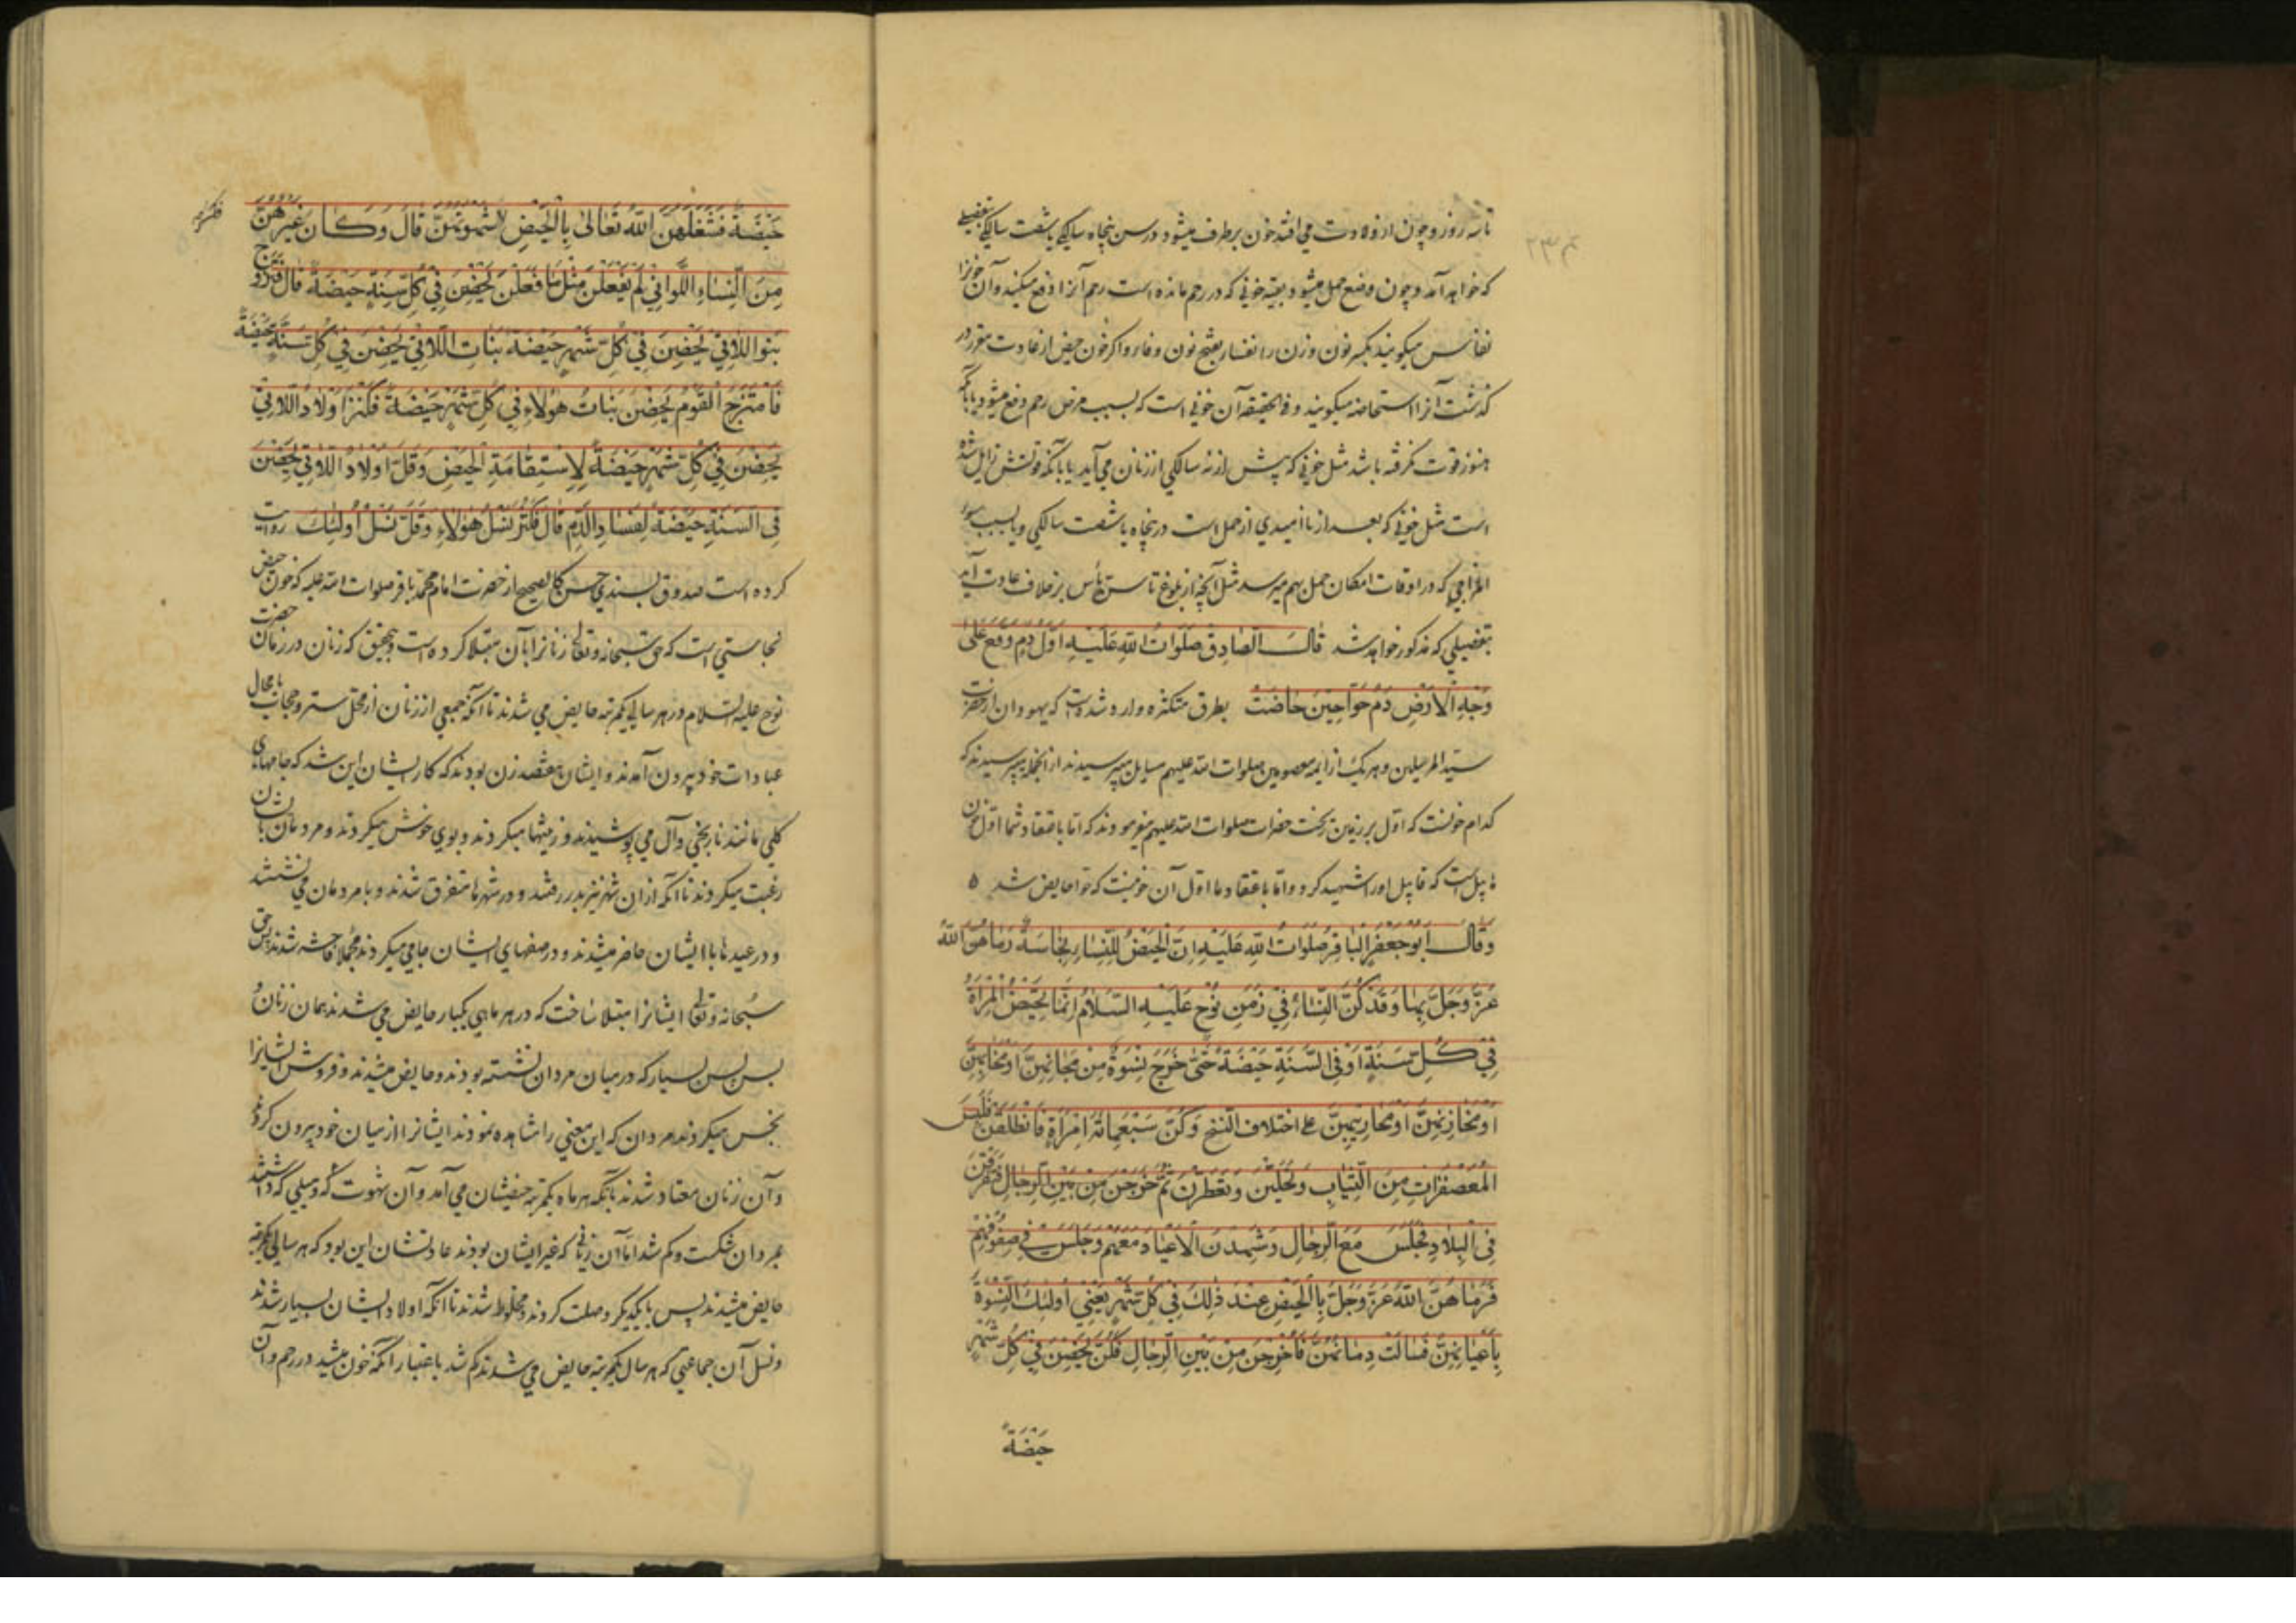 تا سه روز و چون از ولادت می افتد خون برطرف میشود و در سن پنجاه سالگی یا شصت سالگی بتفصیلی
که خواهد آمد و چون وضع حمل میشود بقیه خونی که در رحم مانده است رحم آنرا دفع میکند و آن خونرا
نفاس میگویند بکسر نون و زن را نفسا بفتح نون و فا و اگر خون حیض از عادت مقرر در
گذشت آنرا استحاضه میگویند و فی الحقیقه آن خونی است که بسبب مرض رحم دفع میشود یا بآنکه
هنوز قوت نگرفته باشد مثل خونی که پیش از نه سالگی از زنان می آید یا بآنکه قوتش زایل شده
است مثل خونی که بعد از ناامیدی از حمل است در پنجاه یا شصت سالگی و یا بسبب سوء
المزاجی که در اوقات امکان حمل بهم میرسد مثل آنچه از بلوغ تا سن یأس بر خلاف عادت آید
بتفصیلی که مذکور خواهد شد قَالَ الصَّادِقُ صَلَوَاتُ اللهِ عَلَيْهِ اَوَّلُ دَمٍ وَقَعَ عَلَى
وَجْهِ الْاَرْضِ دَمُ حَوَّا حِينَ حَاضَتْ بطرق متکثره وارد شده است که یهودان از حضرت
سید المرسلین و هر یک از ایمه معصومین صلوات الله علیهم مسایل میپرسیدند از انجمله میپرسیدند که
کدام خونست که اول بر زمین ریخت حضرات صلوات الله علیهم میفرمودند که اما باعتقاد شما اول خون
هابیل است که قابیل او را شهید کرد و اما باعتقاد ما اول آن خونیست که حوا حایض شد ٥
وَقَالَ اَبُو جَعْفَرٍ الْبَاقِرُ صَلَوَاتُ اللهِ عَلَيْهِ اِنَّ الْحَيْضَ لِلنِّسَاءِ نَجَاسَةٌ رَمَاهُنَّ اللهُ
عَزَّ وَجَلَّ بِهَا وَقَدْ كُنَّ النِّسَاءُ فِي زَمَنِ نُوحٍ عَلَيْهِ السَّلَامُ اِنَّمَا تَحِيضُ الْمَرْاَةُ
فِي كُلِّ سَنَةٍ اَوْ فِي السَّنَةِ حَيْضَةً حَتّٰى خَرَجَ نِسْوَةٌ مِنْ مَجَانِهِنَّ اَوْ مَحَابِهِنَّ
اَوْ مَخَازِنِهِنَّ اَوْ مَحَارِيبِهِنَّ علی اختلاف النسخ وَكُنَّ سَبْعَمِائَةِ امْرَاَةٍ فَانْطَلَقْنَ فَلَبِسْنَ
الْمُعَصْفَرَاتِ مِنَ الثِّيَابِ وَتَحَلَّيْنَ وَتَعَطَّرْنَ ثُمَّ خَرَجْنَ مِنْ بَيْنِ الرِّجَالِ فَتَفَرَّقْنَ
فِي الْبِلَادِ فَجَلَسْنَ مَعَ الرِّجَالِ وَشَهِدْنَ الْاَعْيَادَ مَعَهُمْ وَجَلَسْنَ فِي صُفُوفِهِمْ
فَرَمَاهُنَّ اللهُ عَزَّ وَجَلَّ بِالْحَيْضِ عِنْدَ ذٰلِكَ فِي كُلِّ شَهْرٍ يَعْنِي اُولٰئِكَ النِّسْوَةَ
بِاَعْيَانِهِنَّ فَسَالَتْ دِمَائُهُنَّ فَاُخْرِجْنَ مِنْ بَيْنِ الرِّجَالِ فَكُنَّ يَحِضْنَ فِي كُلِّ شَهْرٍ
حَيْضَةً
حَيْضَةً فَشَغَلَهُنَّ اللهُ تَعَالٰى بِالْحَيْضِ شَهْوَتَهُنَّ قَالَ وَكَانَ غَيْرُهُنَّ
مِنَ النِّسَاءِ اللَّوَاتِي لَمْ يَفْعَلْنَ مِثْلَ مَا فَعَلْنَ يَحِضْنَ فِي كُلِّ سَنَةٍ حَيْضَةً قَالَ فَتَزَوَّجَ
بَنُو اللَّاتِي يَحِضْنَ فِي كُلِّ شَهْرٍ حَيْضَةً بَنَاتِ اللَّاتِي يَحِضْنَ فِي كُلِّ سَنَةٍ حَيْضَةً
فَامْتَزَجَ الْقَوْمُ يَحِضْنَ بَنَاتُ هٰؤُلَاءِ فِي كُلِّ شَهْرٍ حَيْضَةً فَكَثُرَ اَوْلَادُ اللَّاتِي
يَحِضْنَ فِي كُلِّ شَهْرٍ حَيْضَةً لِاسْتِقَامَةِ الْحَيْضِ وَقَلَّ اَوْلَادُ اللَّاتِي يَحِضْنَ
فِي السَّنَةِ حَيْضَةً لِفَسَادِ الدَّمِ قَالَ فَكَثُرَ نَسْلُ هٰؤُلَاءِ وَقَلَّ نَسْلُ اُولٰئِكَ روایت
کرده است صدوق بسندی حسن کالصحیح از حضرت امام محمد باقر صلوات الله علیه که خون حیض
نجاستی است که حق سبحانه و تعالی زنانرا بآن مبتلا کرده است و بتحقیق که زنان در زمان حضرت
نوح علیه السلام در هر سالی یکمرتبه حایض می شدند تا آنکه جمعی از زنان از محل ستر و حجاب یا محال
عبادات خود بیرون آمدند و ایشان هفتصد زن بودند که کار ایشان این شد که جامهای
گلی مانند نارنجی و آل می پوشیدند و زینتها میکردند و بوی خوش میکردند و مردمان بایشان
رغبت میکردند تا آنکه از ان شهر نیز بدر رفتند و در شهرها متفرق شدند و با مردمان می نشستند
و در عیدها با ایشان حاضر میشدند و در صفهای ایشان جا می میکردند مجملا فاحشه شدند پس حق
سبحانه و تعالی ایشانرا مبتلا ساخت که در هر ماهی یکبار حایض می شدند همان زنان
بس بسیار که در میان مردان نشسته بودند و حایض میشدند و فروش ایشانرا
نجس میکردند مردان که این معنی را مشاهده نمودند ایشانرا از میان خود بیرون کردند
و آن زنان معتاد شدند بآنکه هر ماه یکمرتبه حیضشان می آمد و آن شهوت که و میلی که داشتند
بمردان شکست و کم شد اما آن زنانی که غیر ایشان بودند عادتشان این بود که هر سالی یکمرتبه
حایض میشدند پس با یکدیگر وصلت کردند و مخلوط شدند تا آنکه اولاد ایشان بسیار شدند
و نسل آن جماعتی که هر سال یکمرتبه حایض می شدند کم شد باعتبار آنکه خون میشد در رحم و آن